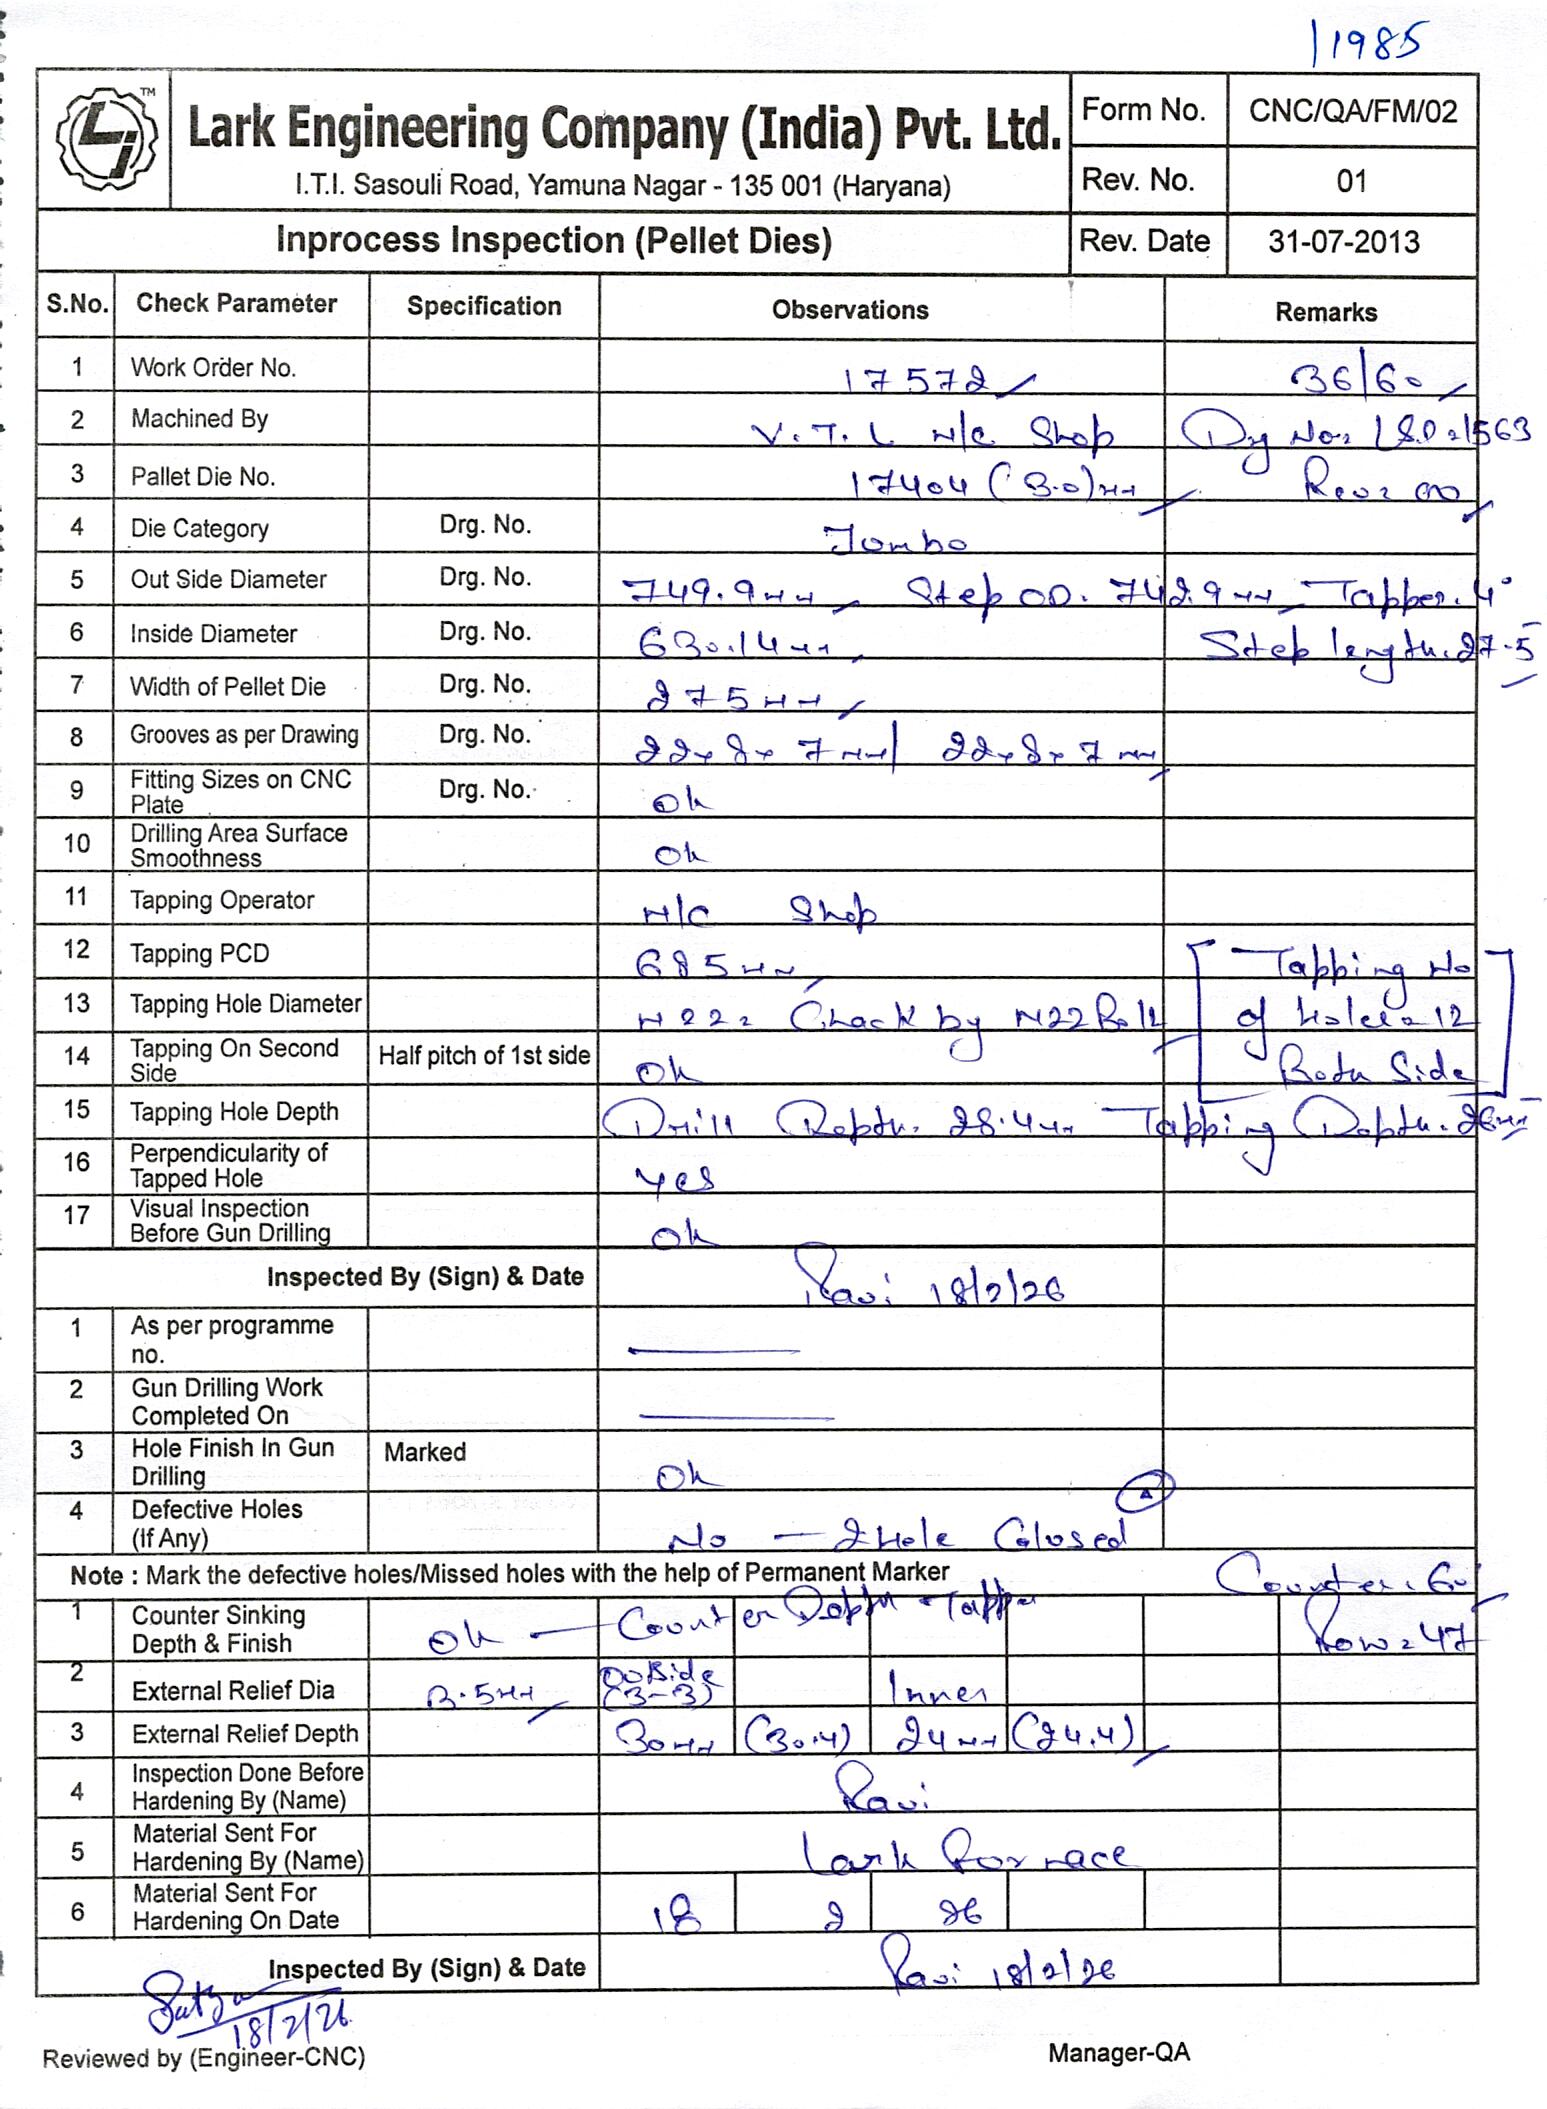 11985
Lark Engineering Company (India) Pvt. Ltd.
I.T.I. Sasouli Road, Yamuna Nagar - 135 001 (Haryana)
Form No. CNC/QA/FM/02
Rev. No. 01
Inprocess Inspection (Pellet Dies) Rev. Date 31-07-2013
S.No. Check Parameter Specification Observations Remarks
1 Work Order No. 17572 36/60
2 Machined By V.T.L M/c Shop Drg No= LSD=1563
3 Pallet Die No. 17404 (3.0)mm Rev= 00
4 Die Category Drg. No. Jumbo
5 Out Side Diameter Drg. No. 749.9mm Step OD. 742.9mm Tapper. 4°
6 Inside Diameter Drg. No. 630.14mm Step length. 27.5
7 Width of Pellet Die Drg. No. 275mm
8 Grooves as per Drawing Drg. No. 22x8x7mm/ 22x8x7mm
9 Fitting Sizes on CNC Plate Drg. No. Ok
10 Drilling Area Surface Smoothness Ok
11 Tapping Operator M/C Shop
12 Tapping PCD 685mm Tapping No
13 Tapping Hole Diameter M22= Chack by M22 Bolt of holes=12
14 Tapping On Second Side Half pitch of 1st side Ok Both Side
15 Tapping Hole Depth Drill Depth. 28.4mm Tapping Depth. 26mm
16 Perpendicularity of Tapped Hole Yes
17 Visual Inspection Before Gun Drilling Ok
Inspected By (Sign) & Date Ravi 18/2/26
1 As per programme no.
2 Gun Drilling Work Completed On
3 Hole Finish In Gun Drilling Marked Ok
4 Defective Holes (If Any) No — 2 Hole Colosed A
Note : Mark the defective holes/Missed holes with the help of Permanent Marker Counter. 60°
1 Counter Sinking Depth & Finish Ok — Counter Depth Tapper Row=47
2 External Relief Dia 3.5mm Outside (3-3) Inner
3 External Relief Depth 30mm (30.4) 24mm (24.4)
4 Inspection Done Before Hardening By (Name) Ravi
5 Material Sent For Hardening By (Name) Lark Fornace
6 Material Sent For Hardening On Date 18 2 26
Inspected By (Sign) & Date Ravi 18/2/26
18/2/26
Reviewed by (Engineer-CNC) Manager-QA